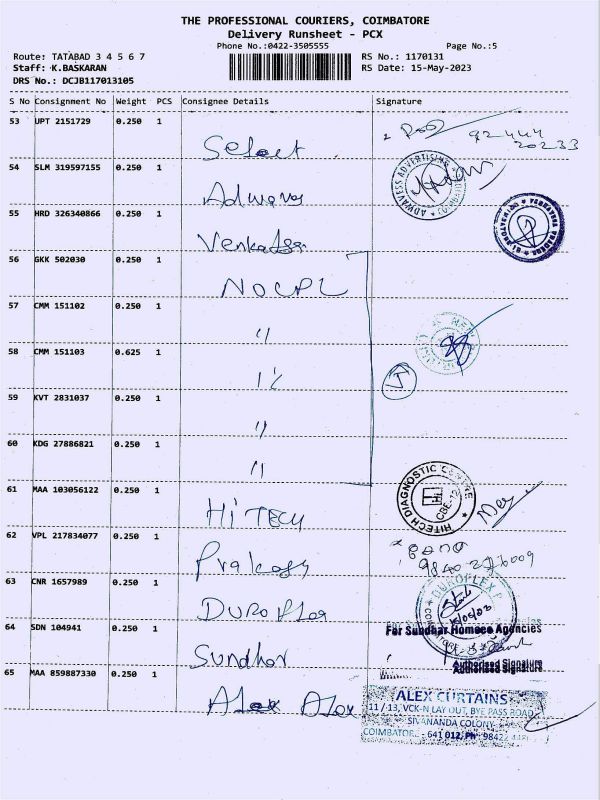 THE PROFESSIONAL COURIERS, COIMBATORE
Delivery Runsheet - PCX
Phone No.:0422-3505555
Page No.:5
Route: TATABAD 3 4 5 6 7
RS No.: 1170131
Staff: K.BASKARAN
RS Date: 15-May-2023
DRS No.: DCJB117013105
S No Consignment No Weight PCS Consignee Details Signature
53 UPT 2151729 0.250 1
Select
92444
20233
54 SLM 319597155 0.250 1
Adwaves
ADWAVESS ADVERTISING
55 HRD 326340866 0.250 1
56 GKK 502030 0.250 1
NOCPL
57 CMM 151102 0.250 1
"
58 CMM 151103 0.625 1
"
5
59 KVT 2831037 0.250 1
"
60 KDG 27886821 0.250 1
"
61 MAA 103056122 0.250 1
Hi TECH
HITECH DIAGNOSTIC CENTRE
CBE-12
62 VPL 217834077 0.250 1
Prakash
63 CNR 1657989 0.250 1
Duroflex
DUROFLEX P
64 SDN 104941 0.250 1
Sundhar
For Sundhar Homoeo Agencies
Authorised Signature
65 MAA 859887330 0.250 1
Alex Alex
ALEX CURTAINS
11 / 13, VCK-N LAY OUT, BYE PASS ROAD
SIVANANDA COLONY
COIMBATORE - 641 012, Ph: 98422